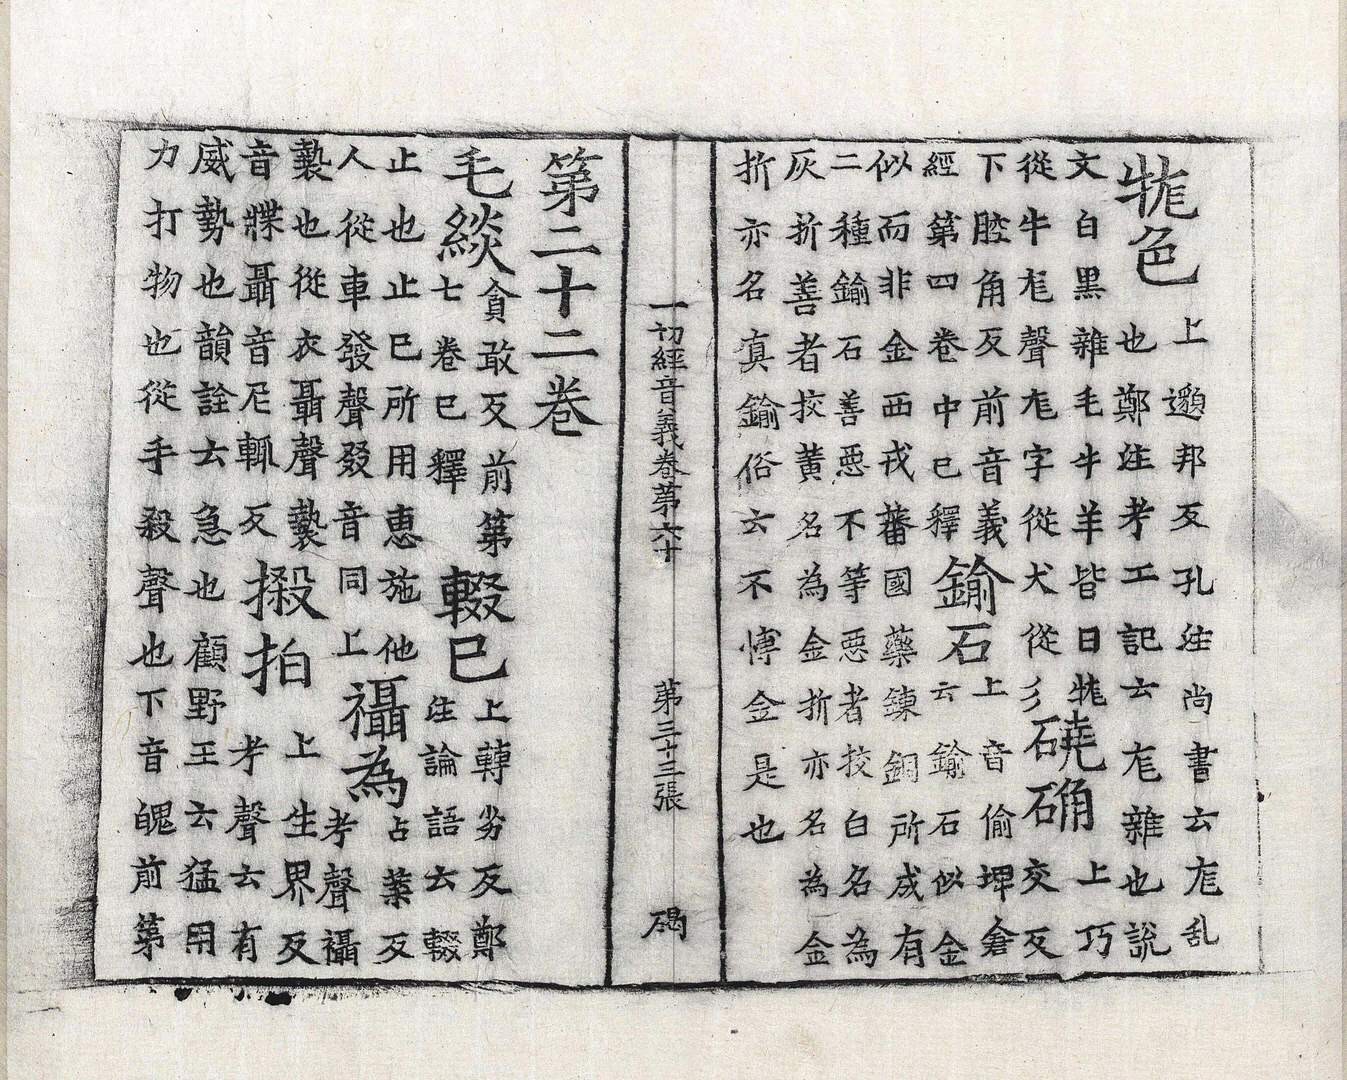 牻色
上邈邦反孔注尚書云尨乱
也鄭注考工記云尨雜也說
文白黑雜毛牛羊皆曰牻
從牛尨聲尨字從犬從彡
磽确
上巧
交反
下腔角反前音義
經第四卷中已釋
鍮石
上音偷埤倉
云鍮石似金
似而非金西戎蕃國藥鍊銅所成有
二種鍮石善惡不等惡者挍白名為
灰折善者挍黃名為金折亦名為金
折亦名真鍮俗云不愽金是也
一切經音義卷第六十 第三十三張 碣
第二十二卷
毛緂
貪敢反前第
七卷已釋
輟已
上轉劣反鄭
注論語云輟
止也止已所用惠施他
人從車發聲叕音同上
襵為
占葉反
考聲襵
褺也從衣聶聲褺
音牒聶音尼輒反
摋拍
上生界反
考聲云有
威勢也韻詮云急也顧野王云猛用
力打物也從手殺聲也下音魄前第